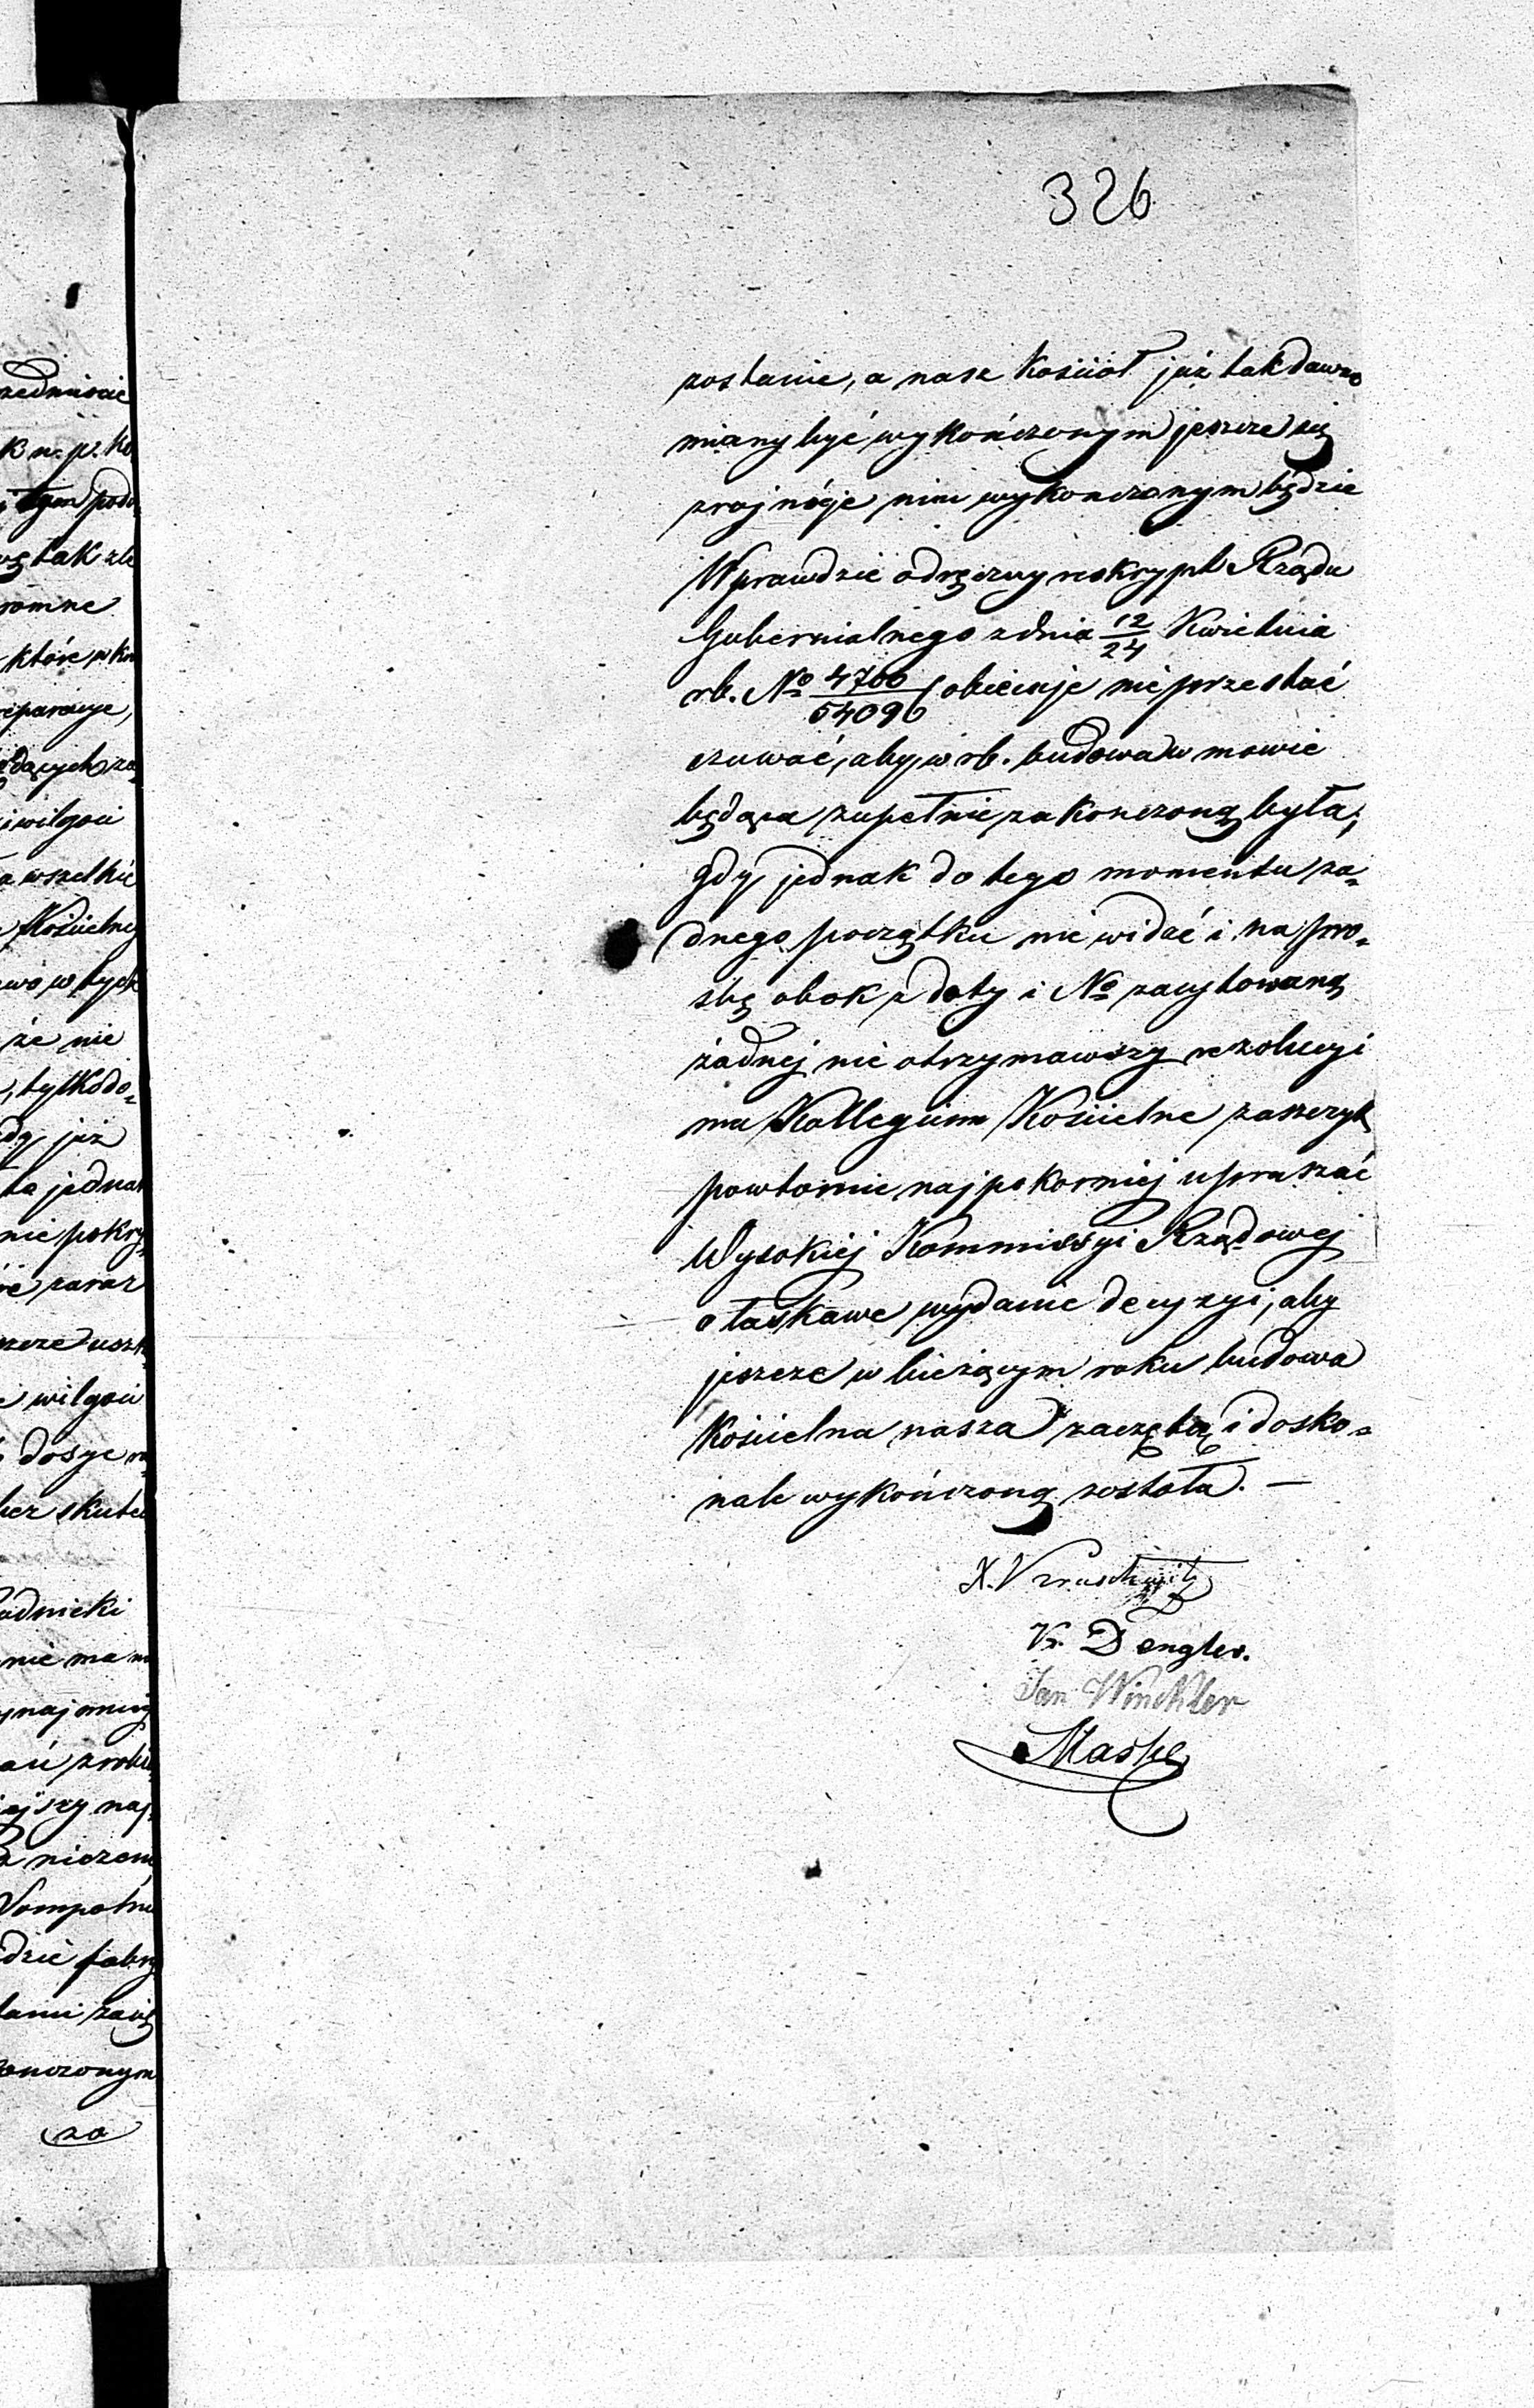 326
zostanie, a nasz Kościół już tak dawno
miany być wykończonym jeszcze się
zrujnóje nim wykonczonym będzie
Wprawdzie odręczny reskrypt Rządu
Gubernialnego z dnia 12/24 Kwietnia
rb. No 4700/54096 obiecuje nie przestać
czuwać, aby w rb. budowa w mowie
będąca zupełnie zakonczoną była;
gdy jednak do tego momentu ża=
dnego początku nie widać i na pro=
śbę obok z daty i No zacytowaną
żadnej nie otrzymawszy rezolucyi
ma Kollegium Kościelne zaszczyt
powtornie najpokorniej upraszać
Wysokiej Kommissyi Rządowej
o łaskawe wydanie decyzyi, aby
jeszcze w bieżącym roku budowa
Kościelna nasza zaczętą i dosko=
nale wykończoną została. —
K. Dengler.
Jan Winckler
Maske
rzedmiocie
k n. p. ko
i tym podo
tak zle
romne
które w
reparacye,
będących za
i wilgoci
a wszelkie
Kościelne
w tych
że nie
, tylko do=
już
ta jednak
nie pokry
zaraz
wilgoci
dosyc
bez skute
nie ma
najmniej
Sompolnie
dzie fabry
onczonym
za